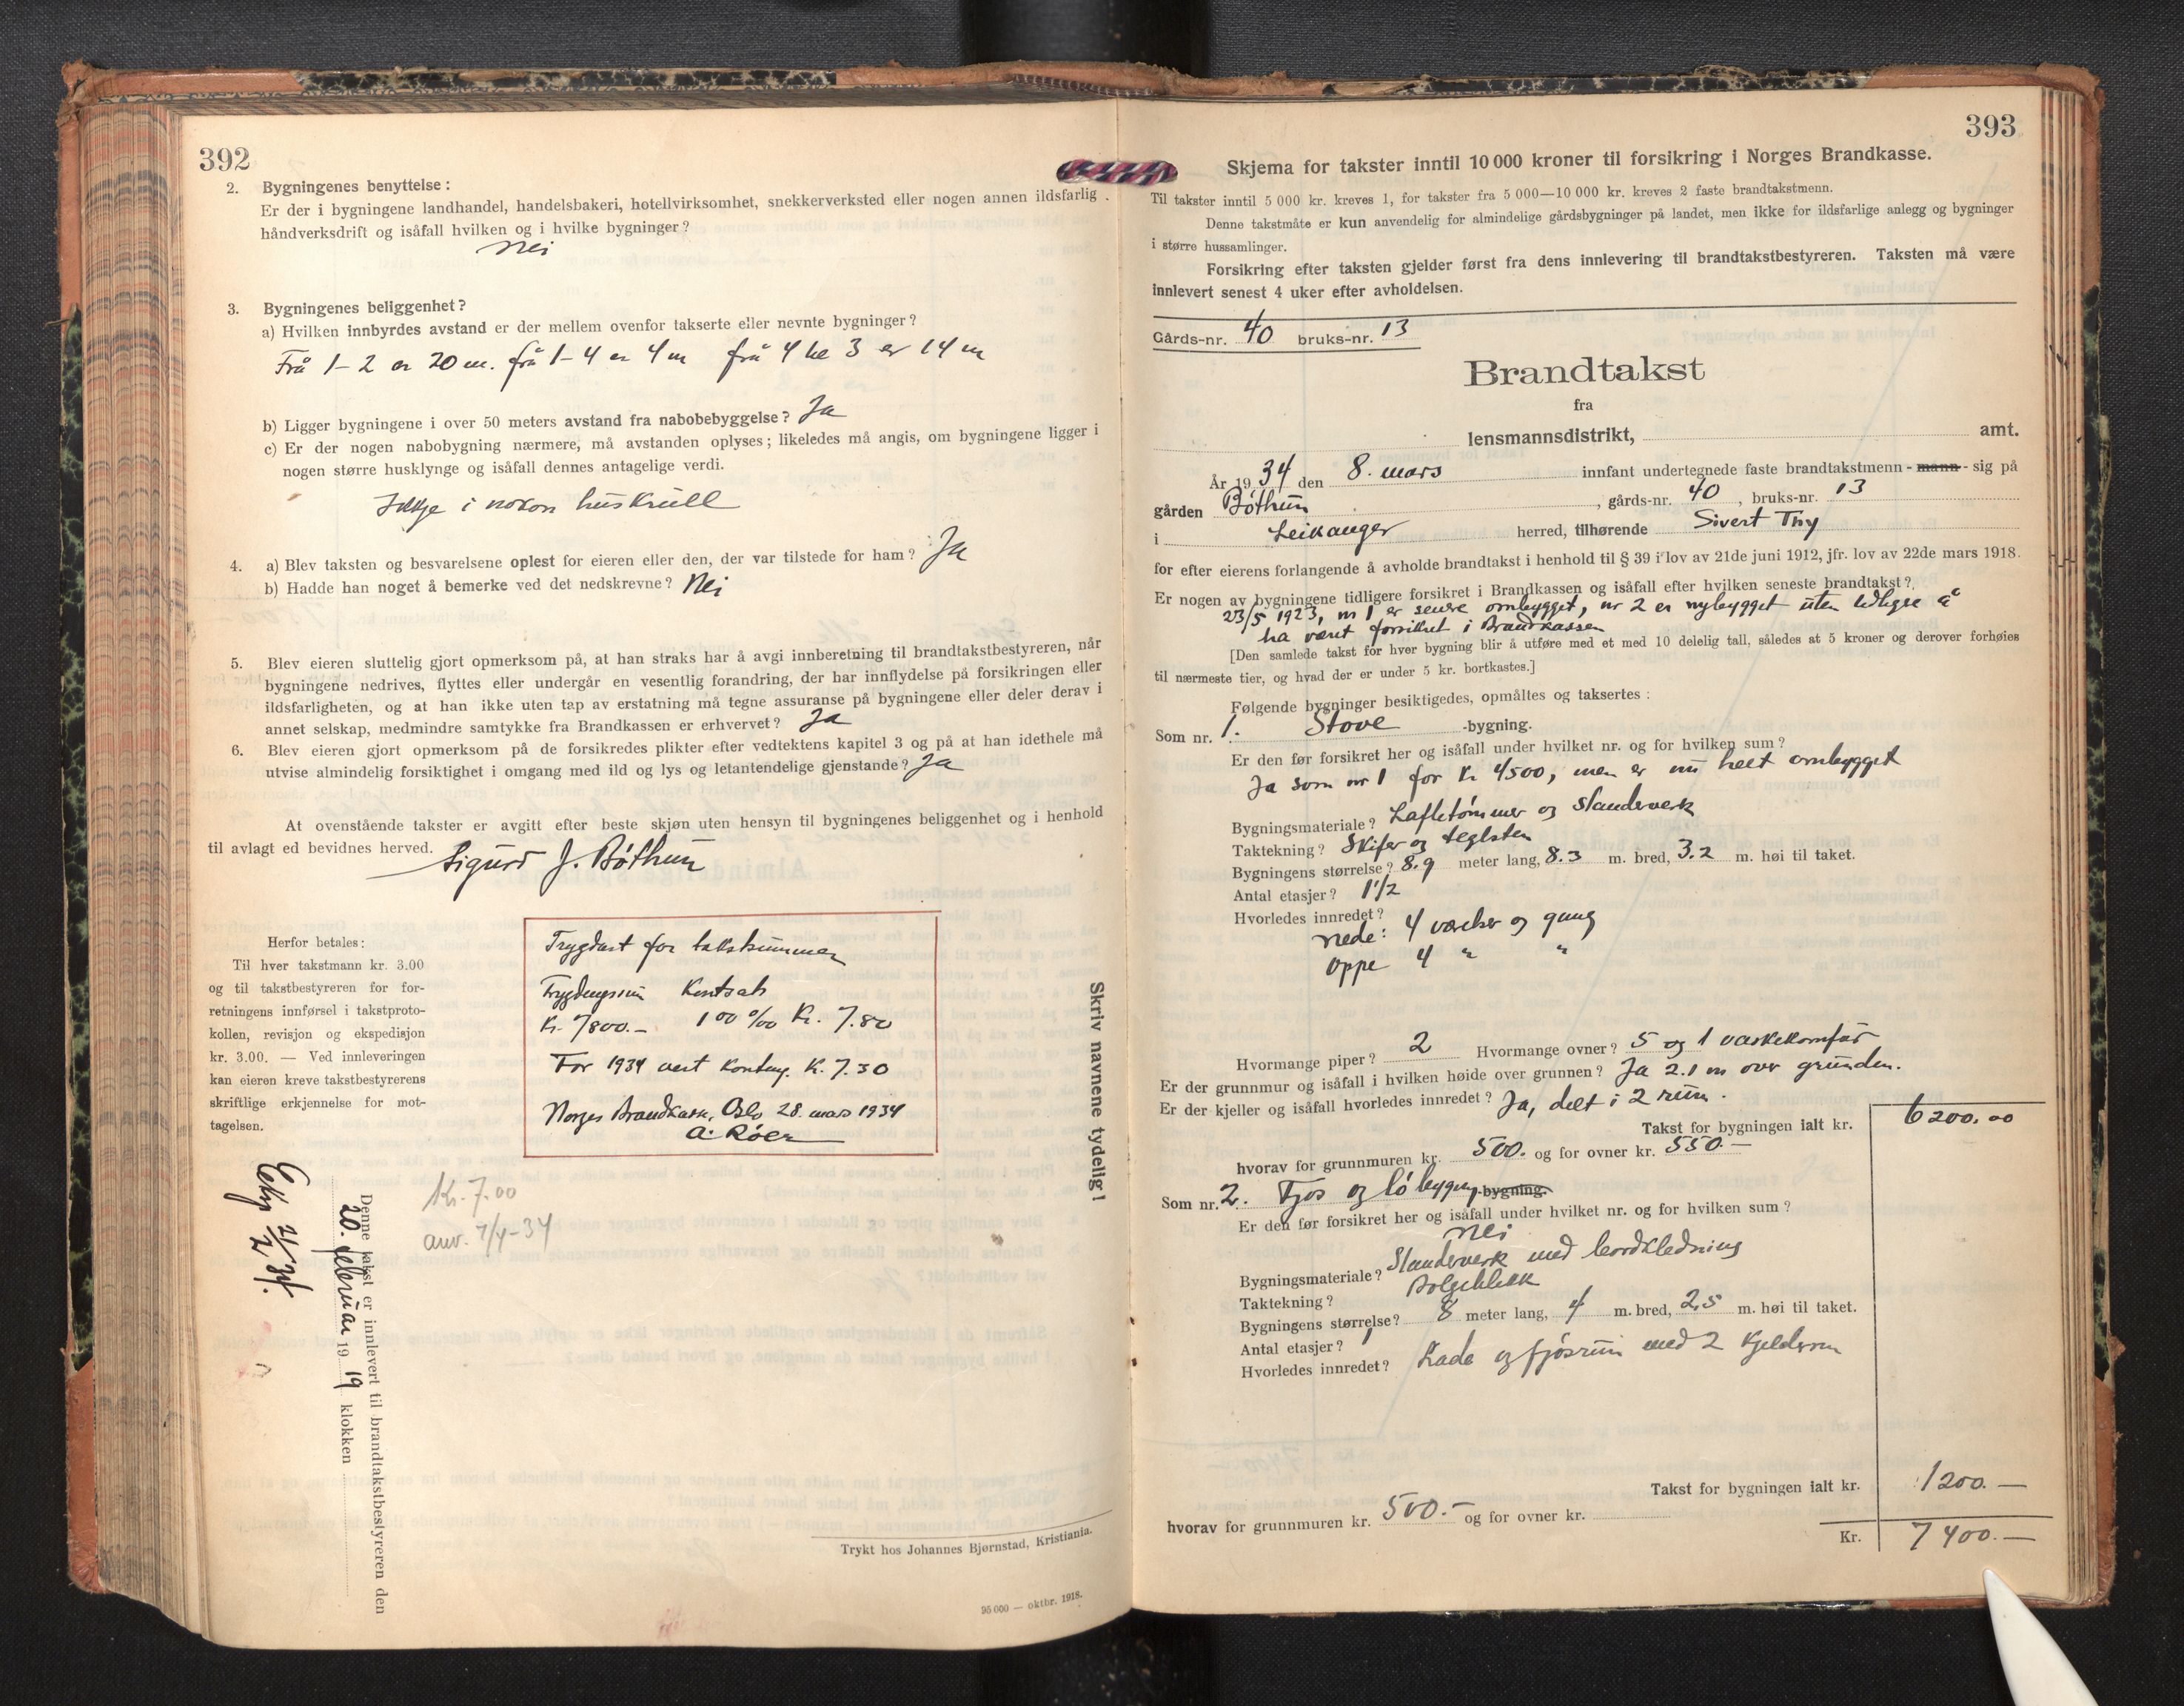 392
2. Bygningenes benyttelse:
Er der i bygningene landhandel, handelsbakeri, hotellvirksomhet, snekkerverksted eller nogen annen ildsfarlig
håndverksdrift og isåfall hvilken og i hvilke bygninger?
Nei
3. Bygningenes beliggenhet?
a) Hvilken innbyrdes avstand er der mellem ovenfor takserte eller nevnte bygninger?
Frå 1-2 er 20 m. frå 1-4 er 4 m frå 4 te 3 er 14 m
b) Ligger bygningene i over 50 meters avstand fra nabobebyggelse? Ja
c) Er der nogen nabobygning nærmere, må avstanden oplyses; likeledes må angis, om bygningene ligger i
nogen større husklynge og isåfall dennes antagelige verdi.
Ikkje i nokon huskrull
4. a) Blev taksten og besvarelsene oplest for eieren eller den, der var tilstede for ham? Ja
b) Hadde han noget å bemerke ved det nedskrevne? Nei
5. Blev eieren sluttelig gjort opmerksom på, at han straks har å avgi innberetning til brandtakstbestyreren, når
bygningene nedrives, flyttes eller undergår en vesentlig forandring, der har innflydelse på forsikringen eller
ildsfarligheten, og at han ikke uten tap av erstatning må tegne assuranse på bygningene eller deler derav i
annet selskap, medmindre samtykke fra Brandkassen er erhvervet? Ja
6. Blev eieren gjort opmerksom på de forsikredes plikter efter vedtektens kapitel 3 og på at han idethele må
utvise almindelig forsiktighet i omgang med ild og lys og letantendelige gjenstande? Ja
At ovenstående takster er avgitt efter beste skjøn uten hensyn til bygningenes beliggenhet og i henhold
til avlagt ed bevidnes herved.
Sigurd J. Bøthun
Herfor betales:
Til hver takstmann kr. 3.00
og til takstbestyreren for for-
retningens innførsel i takstproto-
kollen, revisjon og ekspedisjon
kr. 3.00. — Ved innleveringen
kan eieren kreve takstbestyrerens
skriftlige erkjennelse for mot-
tagelsen.
Trygdast for takstsummen
Trygdingssum Kontsats
Kr. 7800.- 1 00 ‰ Kr. 7.80
For 1934 vert Konting. Kr. 7.30
Norges Brandkasse, Oslo 28. mars 1934
A. Röer
Skriv navnene tydelig!
Kr. 7.00
anv. 7/4-34
Denne takst er innlevert til brandtakstbestyreren den
20. februar 19 19 klokken
21/2 34.
Trykt hos Johannes Bjørnstad, Kristiania.
25 000 — oktbr. 1918.
393
Skjema for takster inntil 10 000 kroner til forsikring i Norges Brandkasse.
Til takster inntil 5 000 kr. kreves 1, for takster fra 5 000—10 000 kr. kreves 2 faste brandtakstmenn.
Denne takstmåte er kun anvendelig for almindelige gårdsbygninger på landet, men ikke for ildsfarlige anlegg og bygninger
i større hussamlinger.
Forsikring efter taksten gjelder først fra dens innlevering til brandtakstbestyreren. Taksten må være
innlevert senest 4 uker efter avholdelsen.
Gårds-nr. 40 bruks-nr. 13
Brandtakst
fra
lensmannsdistrikt, amt.
År 1934 den 8. mars innfant undertegnede faste brandtakstmenn - mann - sig på
gården Bøthun, gårds-nr. 40, bruks-nr. 13
i Leikanger herred, tilhørende Sivert Thy
for efter eierens forlangende å avholde brandtakst i henhold til § 39 i lov av 21de juni 1912, jfr. lov av 22de mars 1918.
Er nogen av bygningene tidligere forsikret i Brandkassen og isåfall efter hvilken seneste brandtakst?
23/5 1923, nr 1 er senere ombygget, nr 2 er nybygget uten tidligere å
ha været forsikret i Brandkassen
[Den samlede takst for hver bygning blir å utføre med et med 10 delelig tall, således at 5 kroner og derover forhøies
til nærmeste tier, og hvad der er under 5 kr. bortkastes.]
Følgende bygninger besiktigedes, opmåltes og taksertes:
Som nr. 1. Stove -bygning.
Er den før forsikret her og isåfall under hvilket nr. og for hvilken sum?
Ja som nr 1 for Kr 4500, men er nu helt ombygget
Bygningsmateriale? Laftetømmer og standerverk
Taktekning? Skifer og teglsten
Bygningens størrelse? 8.9 meter lang, 8.3 m. bred, 3.2 m. høi til taket.
Antal etasjer? 1 1/2
Hvorledes innredet?
Nede: 4 værelser og gang
Oppe 4 " "
Hvormange piper? 2 Hvormange ovner? 5 og 1 vaskekomfur
Er der grunnmur og isåfall i hvilken høide over grunnen? Ja 2.1 m over grunden.
Er der kjeller og isåfall hvorledes innredet? Ja, delt i 2 rum.
Takst for bygningen ialt kr. 6200.00
hvorav for grunnmuren kr. 500.- og for ovner kr. 550.—
Som nr. 2. Fjos og løbygn.-bygning.
Er den før forsikret her og isåfall under hvilket nr. og for hvilken sum?
Nei
Bygningsmateriale? Standerverk med bordkledning
Taktekning? Bølgeblekk
Bygningens størrelse? 8 meter lang, 4 m. bred, 2.5 m. høi til taket.
Antal etasjer? 1
Hvorledes innredet? Lade og fjøsrum med 2 kjelderrum
Takst for bygningen ialt kr. 1200.—
hvorav for grunnmuren kr. 500.— og for ovner kr.
Kr. 7400.—